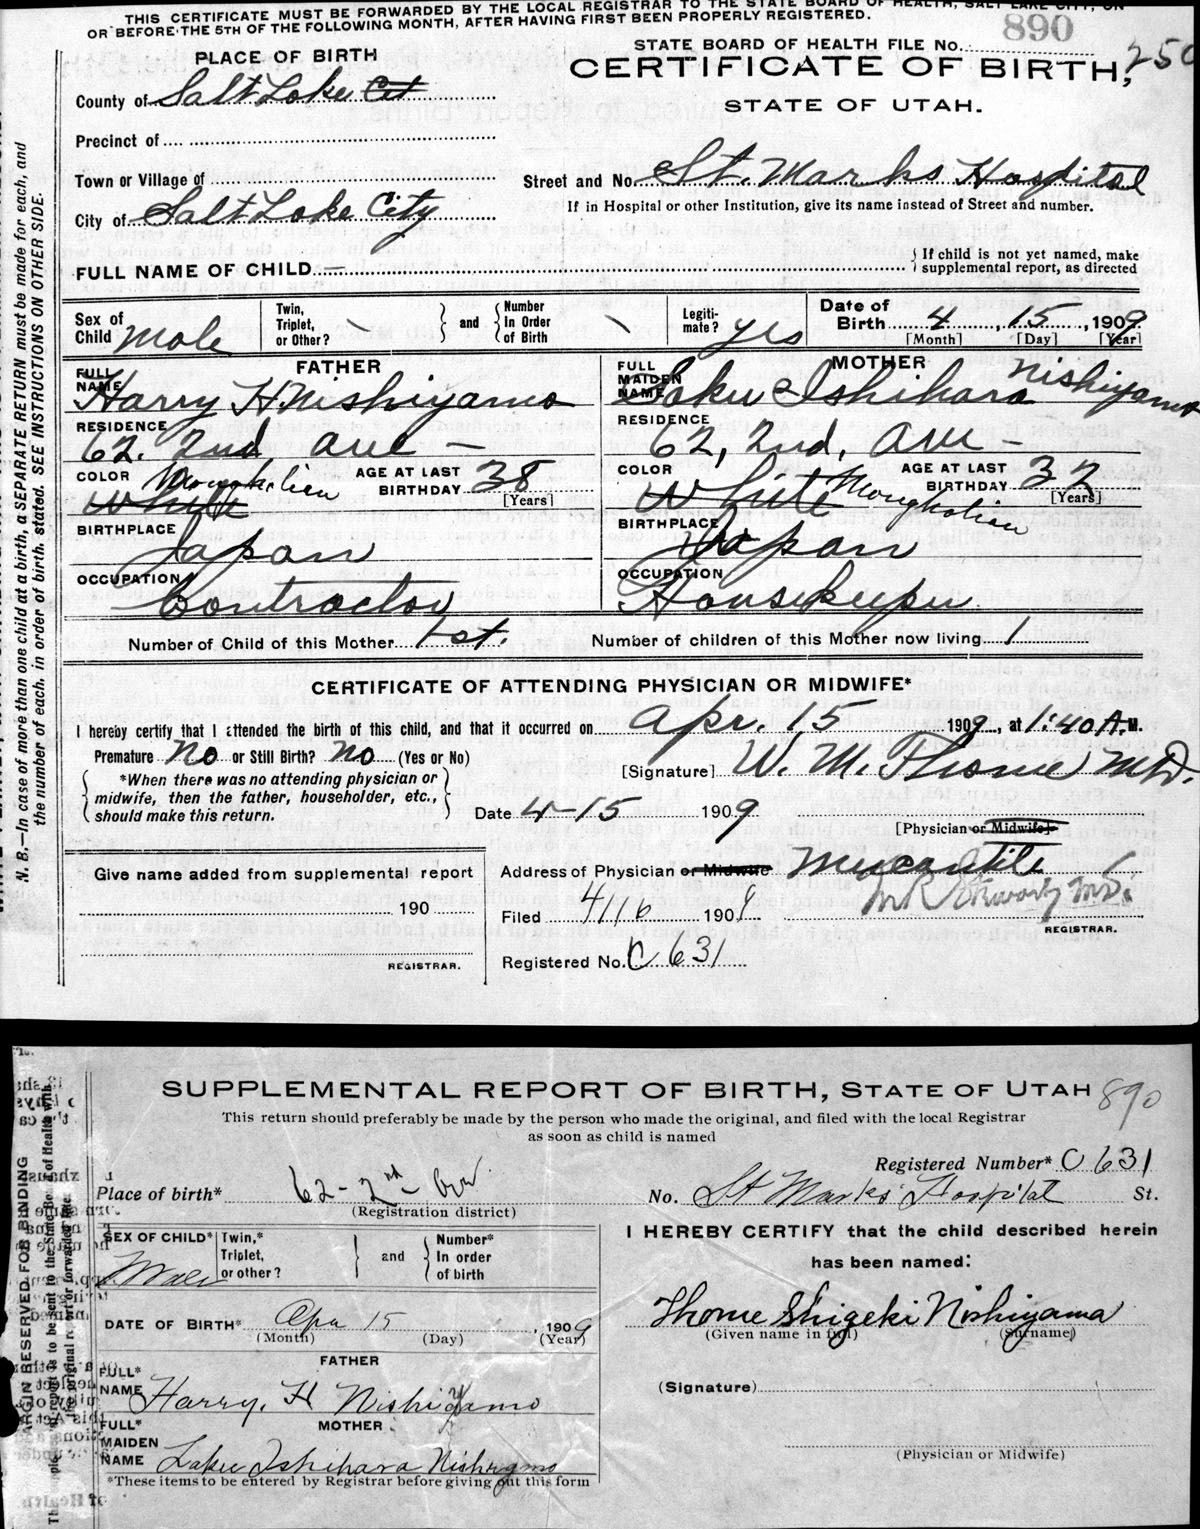 THIS CERTIFICATE MUST BE FORWARDED BY THE LOCAL REGISTRAR TO THE STATE BOARD OF HEALTH, SALT LAKE CITY, ON
OR BEFORE THE 5TH OF THE FOLLOWING MONTH, AFTER HAVING FIRST BEEN PROPERLY REGISTERED.
PLACE OF BIRTH
STATE BOARD OF HEALTH FILE No. 890
CERTIFICATE OF BIRTH, 250
STATE OF UTAH.
County of Salt Lake Cit
Precinct of
Town or Village of
Street and No. St. Marks Hospital
City of Salt Lake City
If in Hospital or other Institution, give its name instead of Street and number.
FULL NAME OF CHILD. —
If child is not yet named, make
supplemental report, as directed
Sex of Child Male
Twin, Triplet, or Other? and Number In Order of Birth
Legiti-mate? yes
Date of Birth 4, 15, 1909
[Month] [Day] [Year]
FATHER
MOTHER
FULL NAME Harry H Nishiyama
FULL MAIDEN NAME Laku Ishihara Nishiyama
RESIDENCE 62. 2nd, ave —
RESIDENCE 62, 2nd, ave —
COLOR White Mongholian AGE AT LAST BIRTHDAY 38 [Years]
COLOR White Mongholian AGE AT LAST BIRTHDAY 32 [Years]
BIRTHPLACE Japan
BIRTHPLACE Japan
OCCUPATION Contractor
OCCUPATION Housekeeper
Number of Child of this Mother 1st. Number of children of this Mother now living 1
CERTIFICATE OF ATTENDING PHYSICIAN OR MIDWIFE*
I hereby certify that I attended the birth of this child, and that it occurred on Apr. 15 1909, at 1:40 A.M.
Premature No or Still Birth? No (Yes or No)
[Signature] W. M. Thome M.D.
*When there was no attending physician or
midwife, then the father, householder, etc.,
should make this return.
Date 4-15 1909
[Physician or Midwife]
Give name added from supplemental report
190
REGISTRAR.
Address of Physician or Midwife Mercantile
Filed 4/16 1909
REGISTRAR.
Registered No. C 631
N. B.—In case of more than one child at a birth, a SEPARATE RETURN must be made for each, and
the number of each, in order of birth, stated. SEE INSTRUCTIONS ON OTHER SIDE.
SUPPLEMENTAL REPORT OF BIRTH, STATE OF UTAH 890
This return should preferably be made by the person who made the original, and filed with the local Registrar
as soon as child is named
Registered Number* C 631
Place of birth* 62 - 2nd - Ave
(Registration district)
No. St Marks Hospital St.
SEX OF CHILD* Male
Twin,* Triplet, or other? and Number* In order of birth
I HEREBY CERTIFY that the child described herein
has been named:
DATE OF BIRTH* Apr 15, 1909
(Month) (Day) (Year)
Thome Shigeki Nishiyama
(Given name in full) (Surname)
FATHER
FULL* NAME Harry. H Nishiyama
(Signature)
MOTHER
FULL* MAIDEN NAME Laku Ishihara Nishiyama
(Physician or Midwife)
*These items to be entered by Registrar before giving out this form
MARGIN RESERVED FOR BINDING